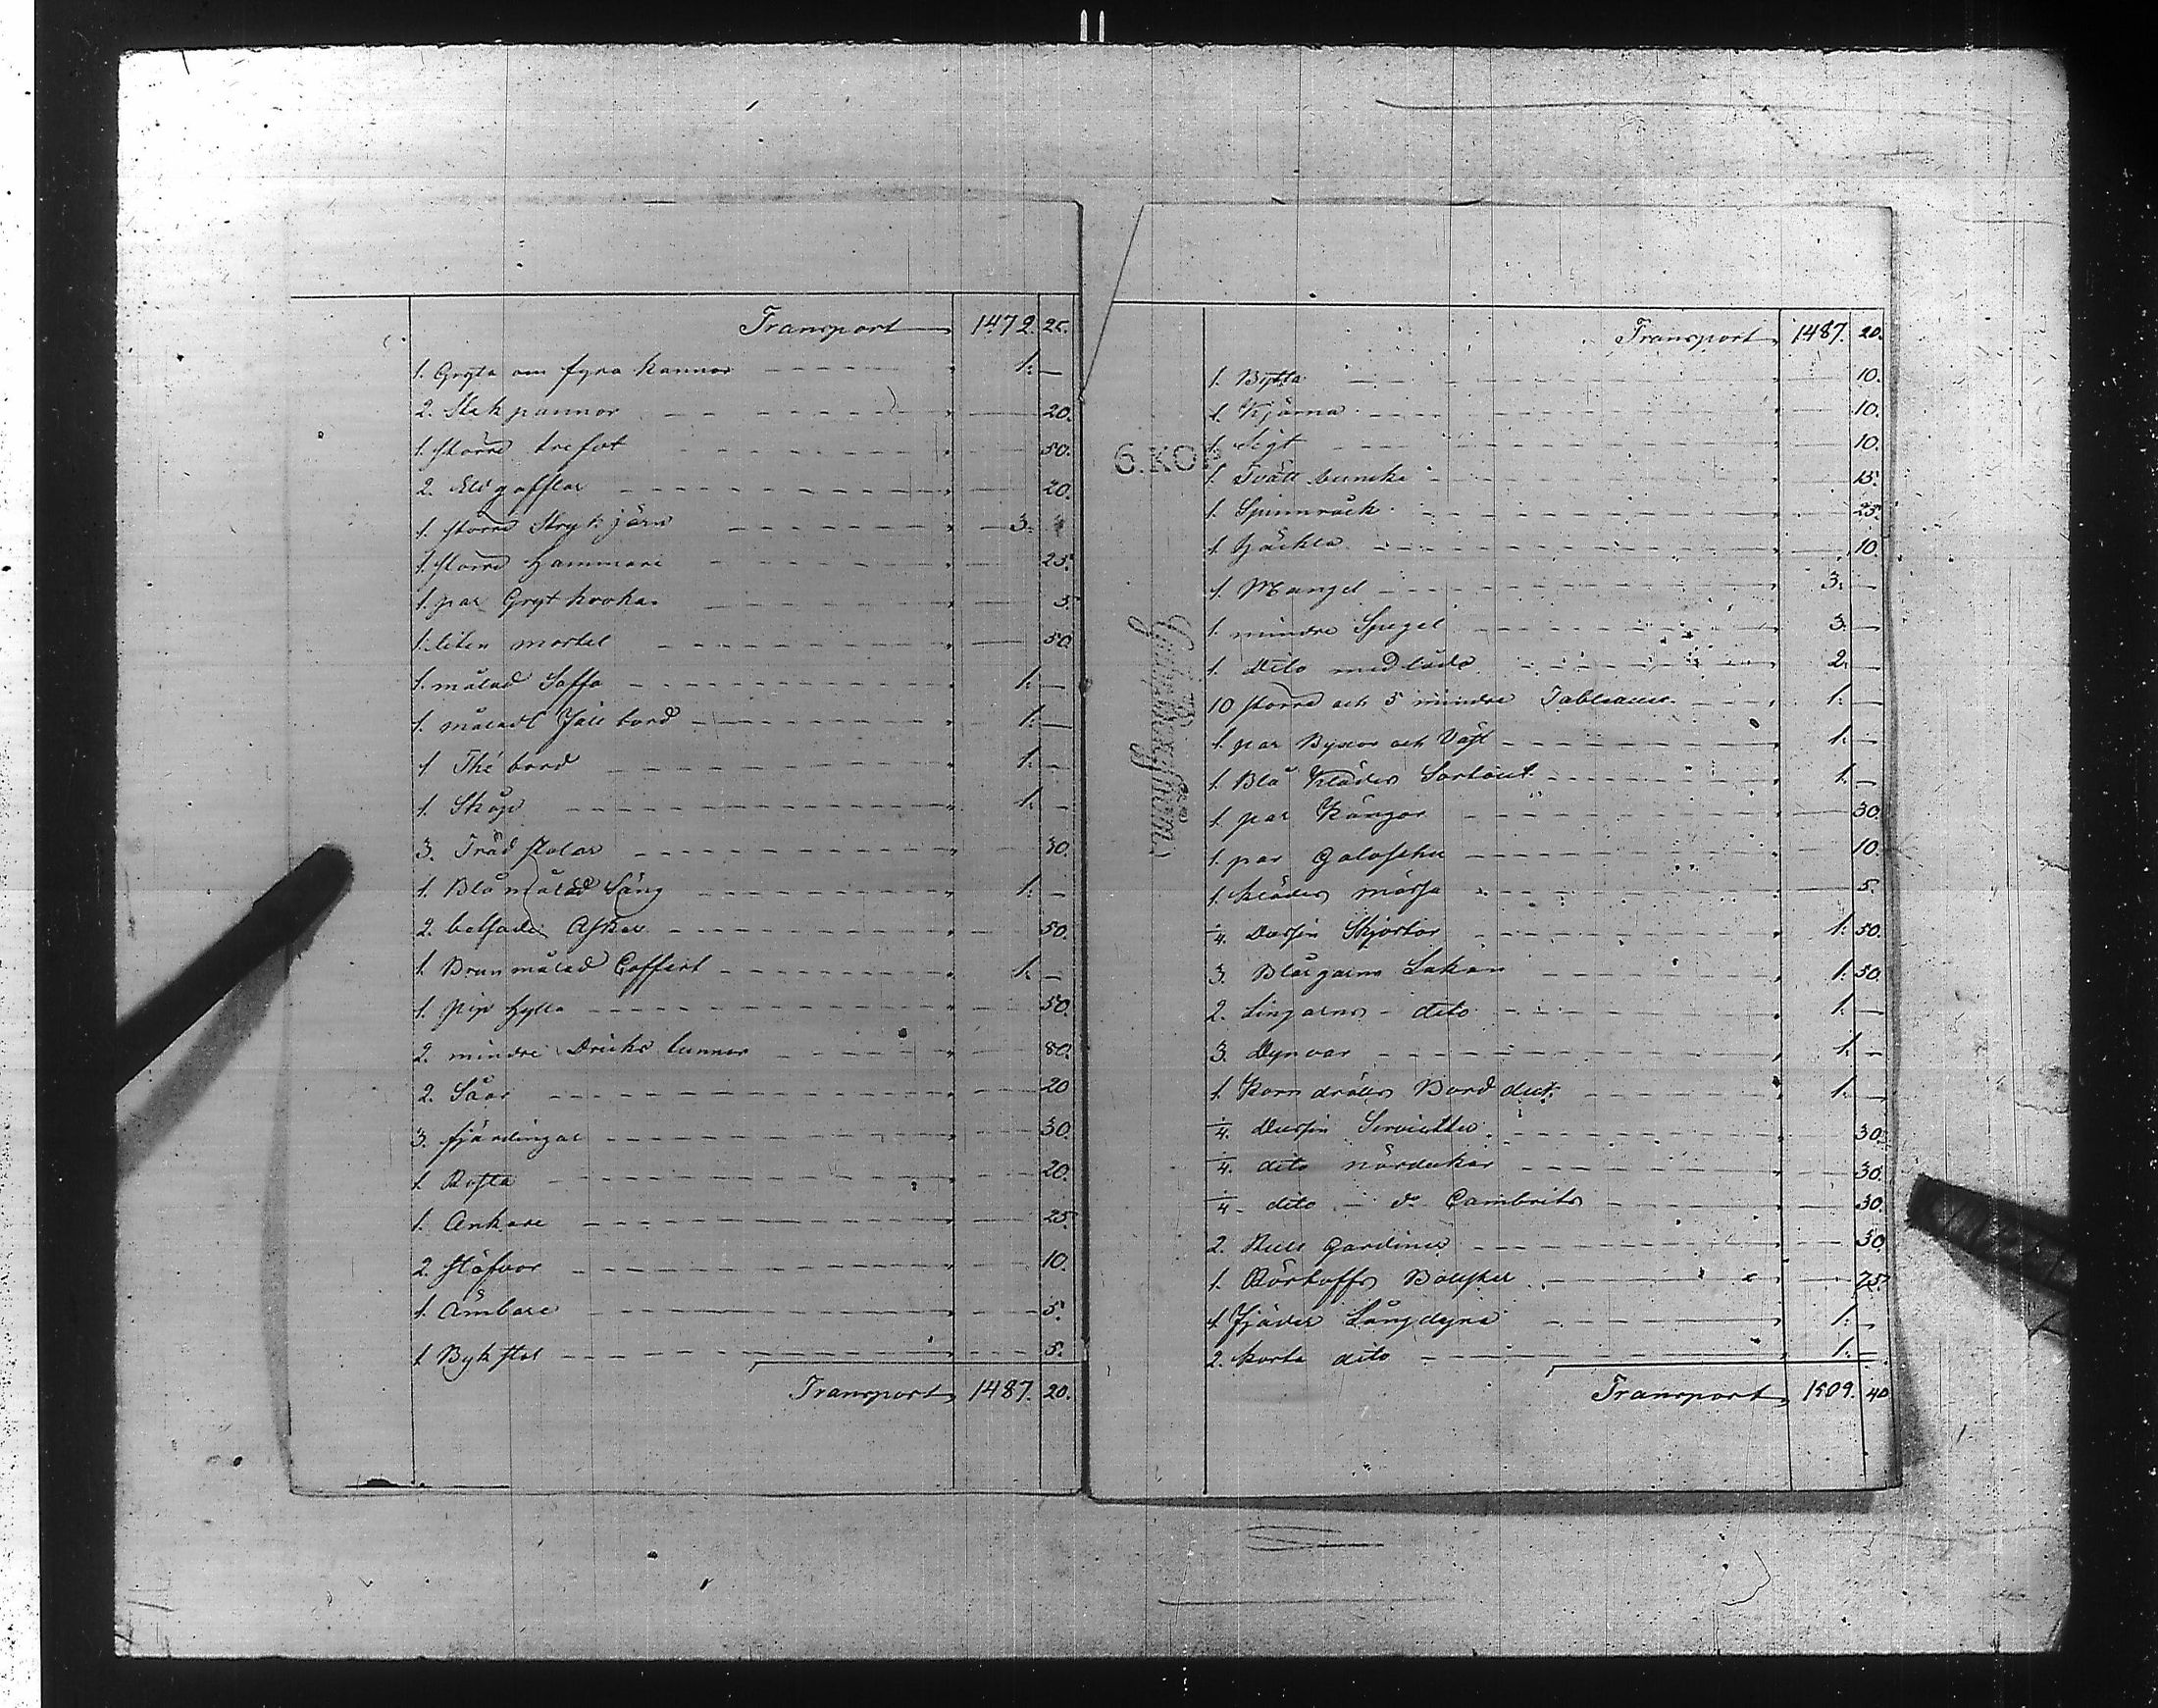 Transport 1472. 25.
1. Gryta om fyra kannor 1. —
2. Stekpannor 20.
1. större trefot 50.
2. Eldgafflar 20.
1. större Strykjärn 3.
1. större Hammare 25.
1. par Grytkrokar 5.
1. liten mortel 50
1. målad Soffa 1. —
1. måladt Fällbord 1. —
1 Thébord 1. —
1. Skåp 1. —
3. Trädstolar 30.
1. Blåmålad Säng 1. —
2. Askar 50.
1. Brunmålad Coffert 1. —
1. Piphylla 50.
2. mindre Drickstunnor 80.
2. Såar 20
3. fjärdingar 30.
1. Bytta 20.
1. Ankare 25
2. stäfvor 10.
1. Ämbare 5.
1 Bykstol 5.
Transport, 1487. 20.
6.KOP
Transport, 1487. 20.
1. Bytta 10.
1. Kjärna 10.
1. Sigt 10.
1. Tvättbunke 15.
1. Spinnråck 25.
1. Häckla 10.
1. Mangel 3. —
1. mindre Spegel 3. —
1. Dito med låda 2. —
10 större och 5 mindre Tableauer 1. —
1. par Byxor och Väst 1. —
1. Blå Klädes Sortout 1. —
1. par Kängor 30.
1. par Galoscher 10.
1. Klädes mössa 5.
1/4. Dussin Skjortor 1. 50.
3. Blågarns Lakan 1. 50.
2. Lingarns dito 1. —
3. Dynvar 1. —
1. Korndrälls Bordduk 1. —
1/4. Dussin Servietter 30.
1/4. dito näsdukar 30.
1/4. dito — do Cambrits 30.
2. Rull Gardiner 30
1. Bolster 75.
1 Fjäder Långdyna 1. —
2. korta dito 1. —
Transport, 1509. 40